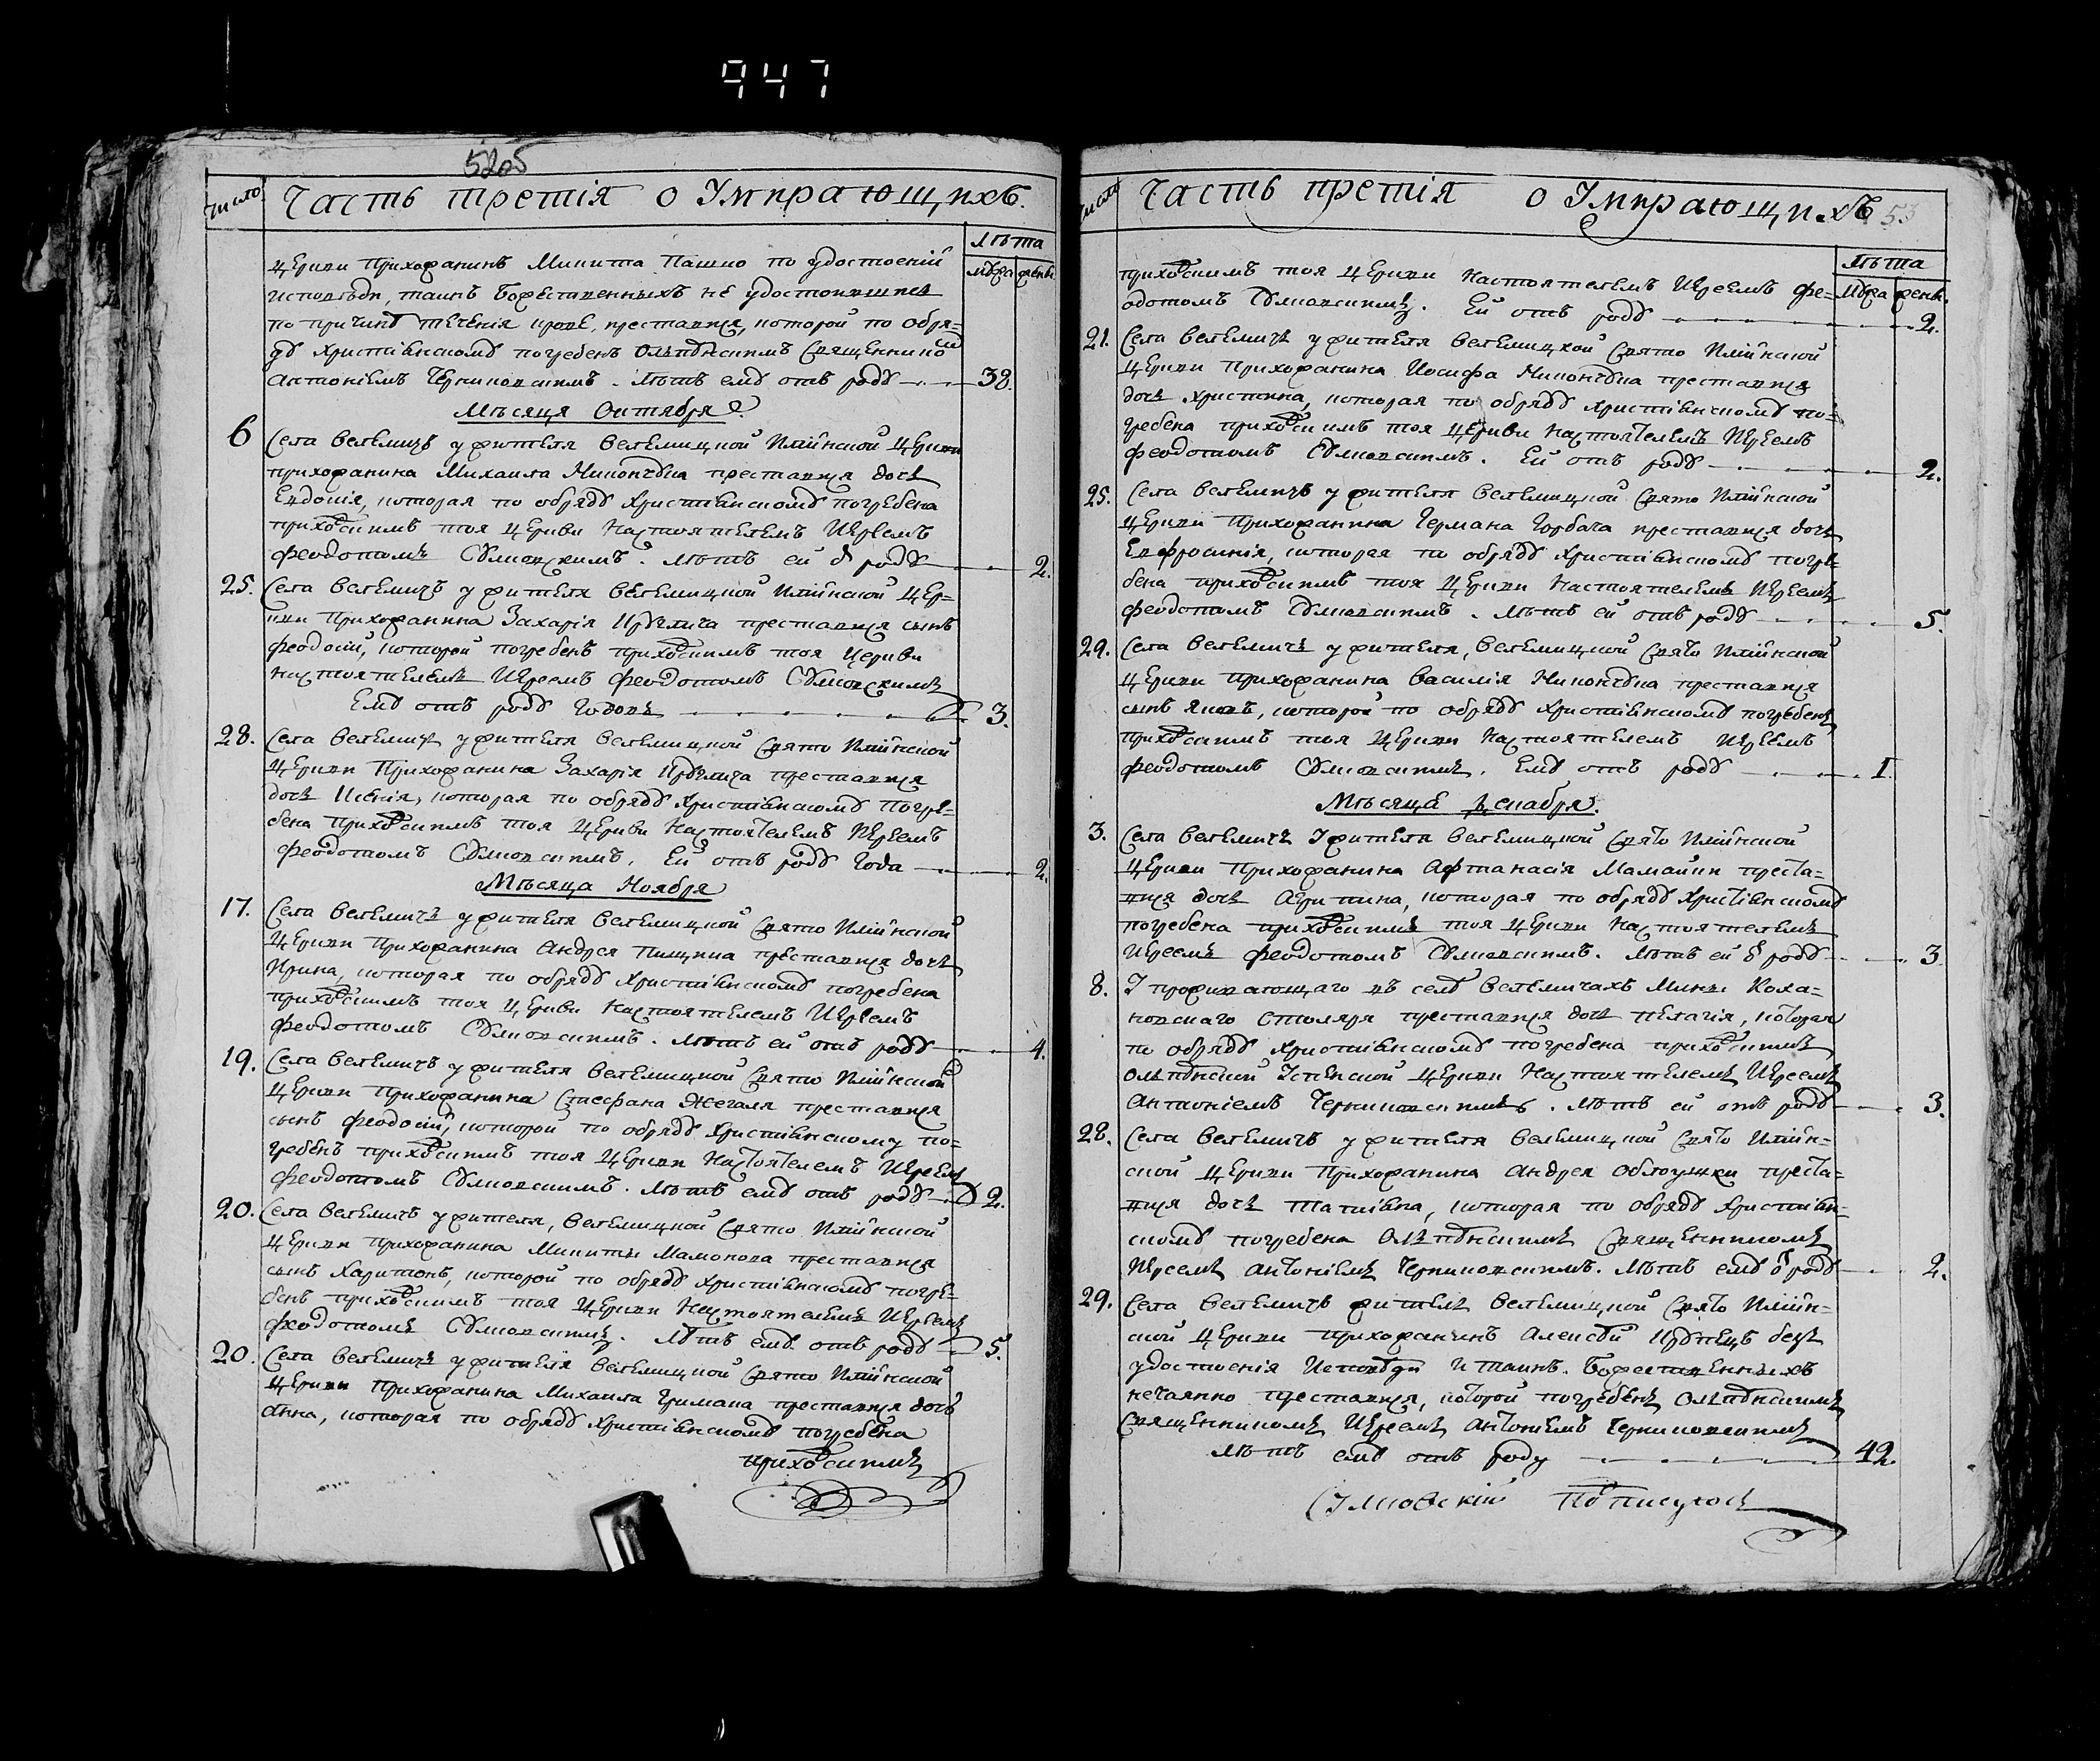 947
52об
Число Часть третія о Умирающихъ.
Лѣта
церкви прихожанинъ Микита Пашко по удостоеній
исповѣди, таинъ Божественныхъ не удостоившись
по причинѣ теченія крове, преставися, которой по обря-
дȣ христіянскомȣ погребенъ Ольпȣнскимъ Священникомъ
Антоніемъ Черниковскимъ. Лѣтъ емȣ отъ родȣ 38.
Мѣсяця Октября
6 Села Велемичъ ȣ жителя Велемицкой Иліинской церкви
прихожанина Михаила преставися дочь
Евдокія, которая по обрядȣ христіянскомȣ погребена
приходскимъ тоя церкви настоятелемъ Иереемъ
Феодотомъ Сȣлковскимъ. Лѣтъ ей ѿ родȣ 2.
25. Села Велемичъ ȣ жителя Велемицкой Иліинской цер-
кви прихожанина Захарія преставися сынъ
Феодосій, которой погребенъ приходскимъ тоя церкви
настоятелемъ Иереемъ Феодотомъ Сȣлковскимъ
Емȣ отъ родȣ годовъ 3.
28. Села Велемичъ ȣ жителя Велемицкой Свято Иліинской
церкви прихожанина Захарія преставися
дочь Ксенія, которая по обрядȣ христіянскомȣ погре-
бена приходскимъ тоя церкви настоятелемъ Иереемъ
Феодотомъ Сȣлковскимъ. Ей отъ родȣ года 2.
Мѣсяца Ноября
17. Села Велемичъ ȣ жителя Велемицкой Свято Иліинской
церкви прихожанина Андрея преставися дочь
Ирина, которая по обрядȣ христіянскомȣ погребена
приходскимъ тоя церкви настоятелемъ Иереемъ
Феодотомъ Сȣлковскимъ. Лѣтъ ей отъ родȣ 4.
19. Села Велемичъ ȣ жителя Велемицкой Свято Иліинской
церкви прихожанина Стефана Жегаля преставися
сынъ Феодосій, которой по обрядȣ христіянскому по-
гребенъ приходскимъ тоя церкви настоятелемъ Иереемъ
Феодотомъ Сȣлковскимъ. Лѣтъ емȣ отъ родȣ 2.
20. Села Велемичъ ȣ жителя, Велемицкой Свято Иліинской
церкви прихожанина Микиты Мамонова преставися
сынъ Харитонъ, которой по обрядȣ христіянскомȣ погре-
бенъ приходскимъ тоя церкви настоятелемъ Иереемъ
Феодотомъ Сȣлковскимъ. Лѣтъ емȣ отъ родȣ 5.
20. Села Велемичъ ȣ жителя Велемицкой Свято Иліинской
церкви прихожанина Михаила преставися дочь
Анна, которая по обрядȣ христіянскомȣ погребена
приходскимъ
Число Часть третія о Умирающихъ 53
Лѣта
приходскимъ тоя церкви настоятелемъ Иереемъ Фе-
одотомъ Сȣлковскимъ. Ей отъ родȣ 2.
21. Села Велемичъ ȣ жителя Велемицкой Свято Иліинской
церкви прихожанина Иосифа преставися
дочь Христина, которая по обрядȣ христіянскомȣ по-
гребена приходскимъ тоя церкви настоятелемъ Иереемъ
Феодотомъ Сȣлковскимъ. Ей отъ родȣ 2.
25. Села Велемичъ ȣ жителя Велемицкой Свято Иліинской
церкви прихожанина Германа Горбача преставися дочь
Евфросинія, которая по обрядȣ христіянскомȣ погре-
бена приходскимъ тоя церкви настоятелемъ Иереемъ
Феодотомъ Сȣлковскимъ. Лѣтъ ей отъ родȣ 5.
29. Села Велемичъ ȣ жителя, Велемицкой Свято Иліинской
церкви прихожанина Василія преставися
сынъ Яковъ, которой по обрядȣ христіянскомȣ погребенъ
приходскимъ тоя церкви настоятелемъ Иереемъ
Феодотомъ Сȣлковскимъ. Емȣ отъ родȣ 1.
Мѣсяца Декабря
3. Села Велемичъ ȣ жителя Велемицкой Свято Иліинской
церкви прихожанина Афтанасія преста-
вися дочь которая по обрядȣ христіянскомȣ
погребена приходскимъ тоя церкви настоятелемъ
Иереемъ Феодотомъ Сȣлковскимъ. Лѣтъ ей ѿ родȣ 3
8. У проживающаго въ селѣ Велемичахъ Коха-
новскаго столяря преставися дочь Пелагія, которая
по обрядȣ христіянскомȣ погребена приходскимъ
Ольпȣнской Успенской церкви настоятелемъ Иереемъ
Антоніемъ Черниковскимъ. Лѣтъ ей отъ родȣ 3.
28. Села Велемичъ ȣ жителя Велемицкой Свято Иліин-
ской церкви прихожанина Андрея преста-
вися дочь Татіяна, которая по обрядȣ христіян-
скомȣ погребена Ольпȣнскимъ Священникомъ
Иереемъ Антоніемъ Черниковскимъ. Лѣтъ емȣ ѿ родȣ 2.
29. Села Велемичъ житель Велемицкой Свято Иліин-
ской церкви прихожанинъ Алексѣй безъ
удостоенія Исповѣди и таинъ Божественныхъ
нечаянно преставися, которой погребенъ Ольпȣнскимъ
Священникомъ Иереемъ Антоніемъ Черниковскимъ
Лѣтъ емȣ отъ роду 42.
Сулковскій Подписуюсь